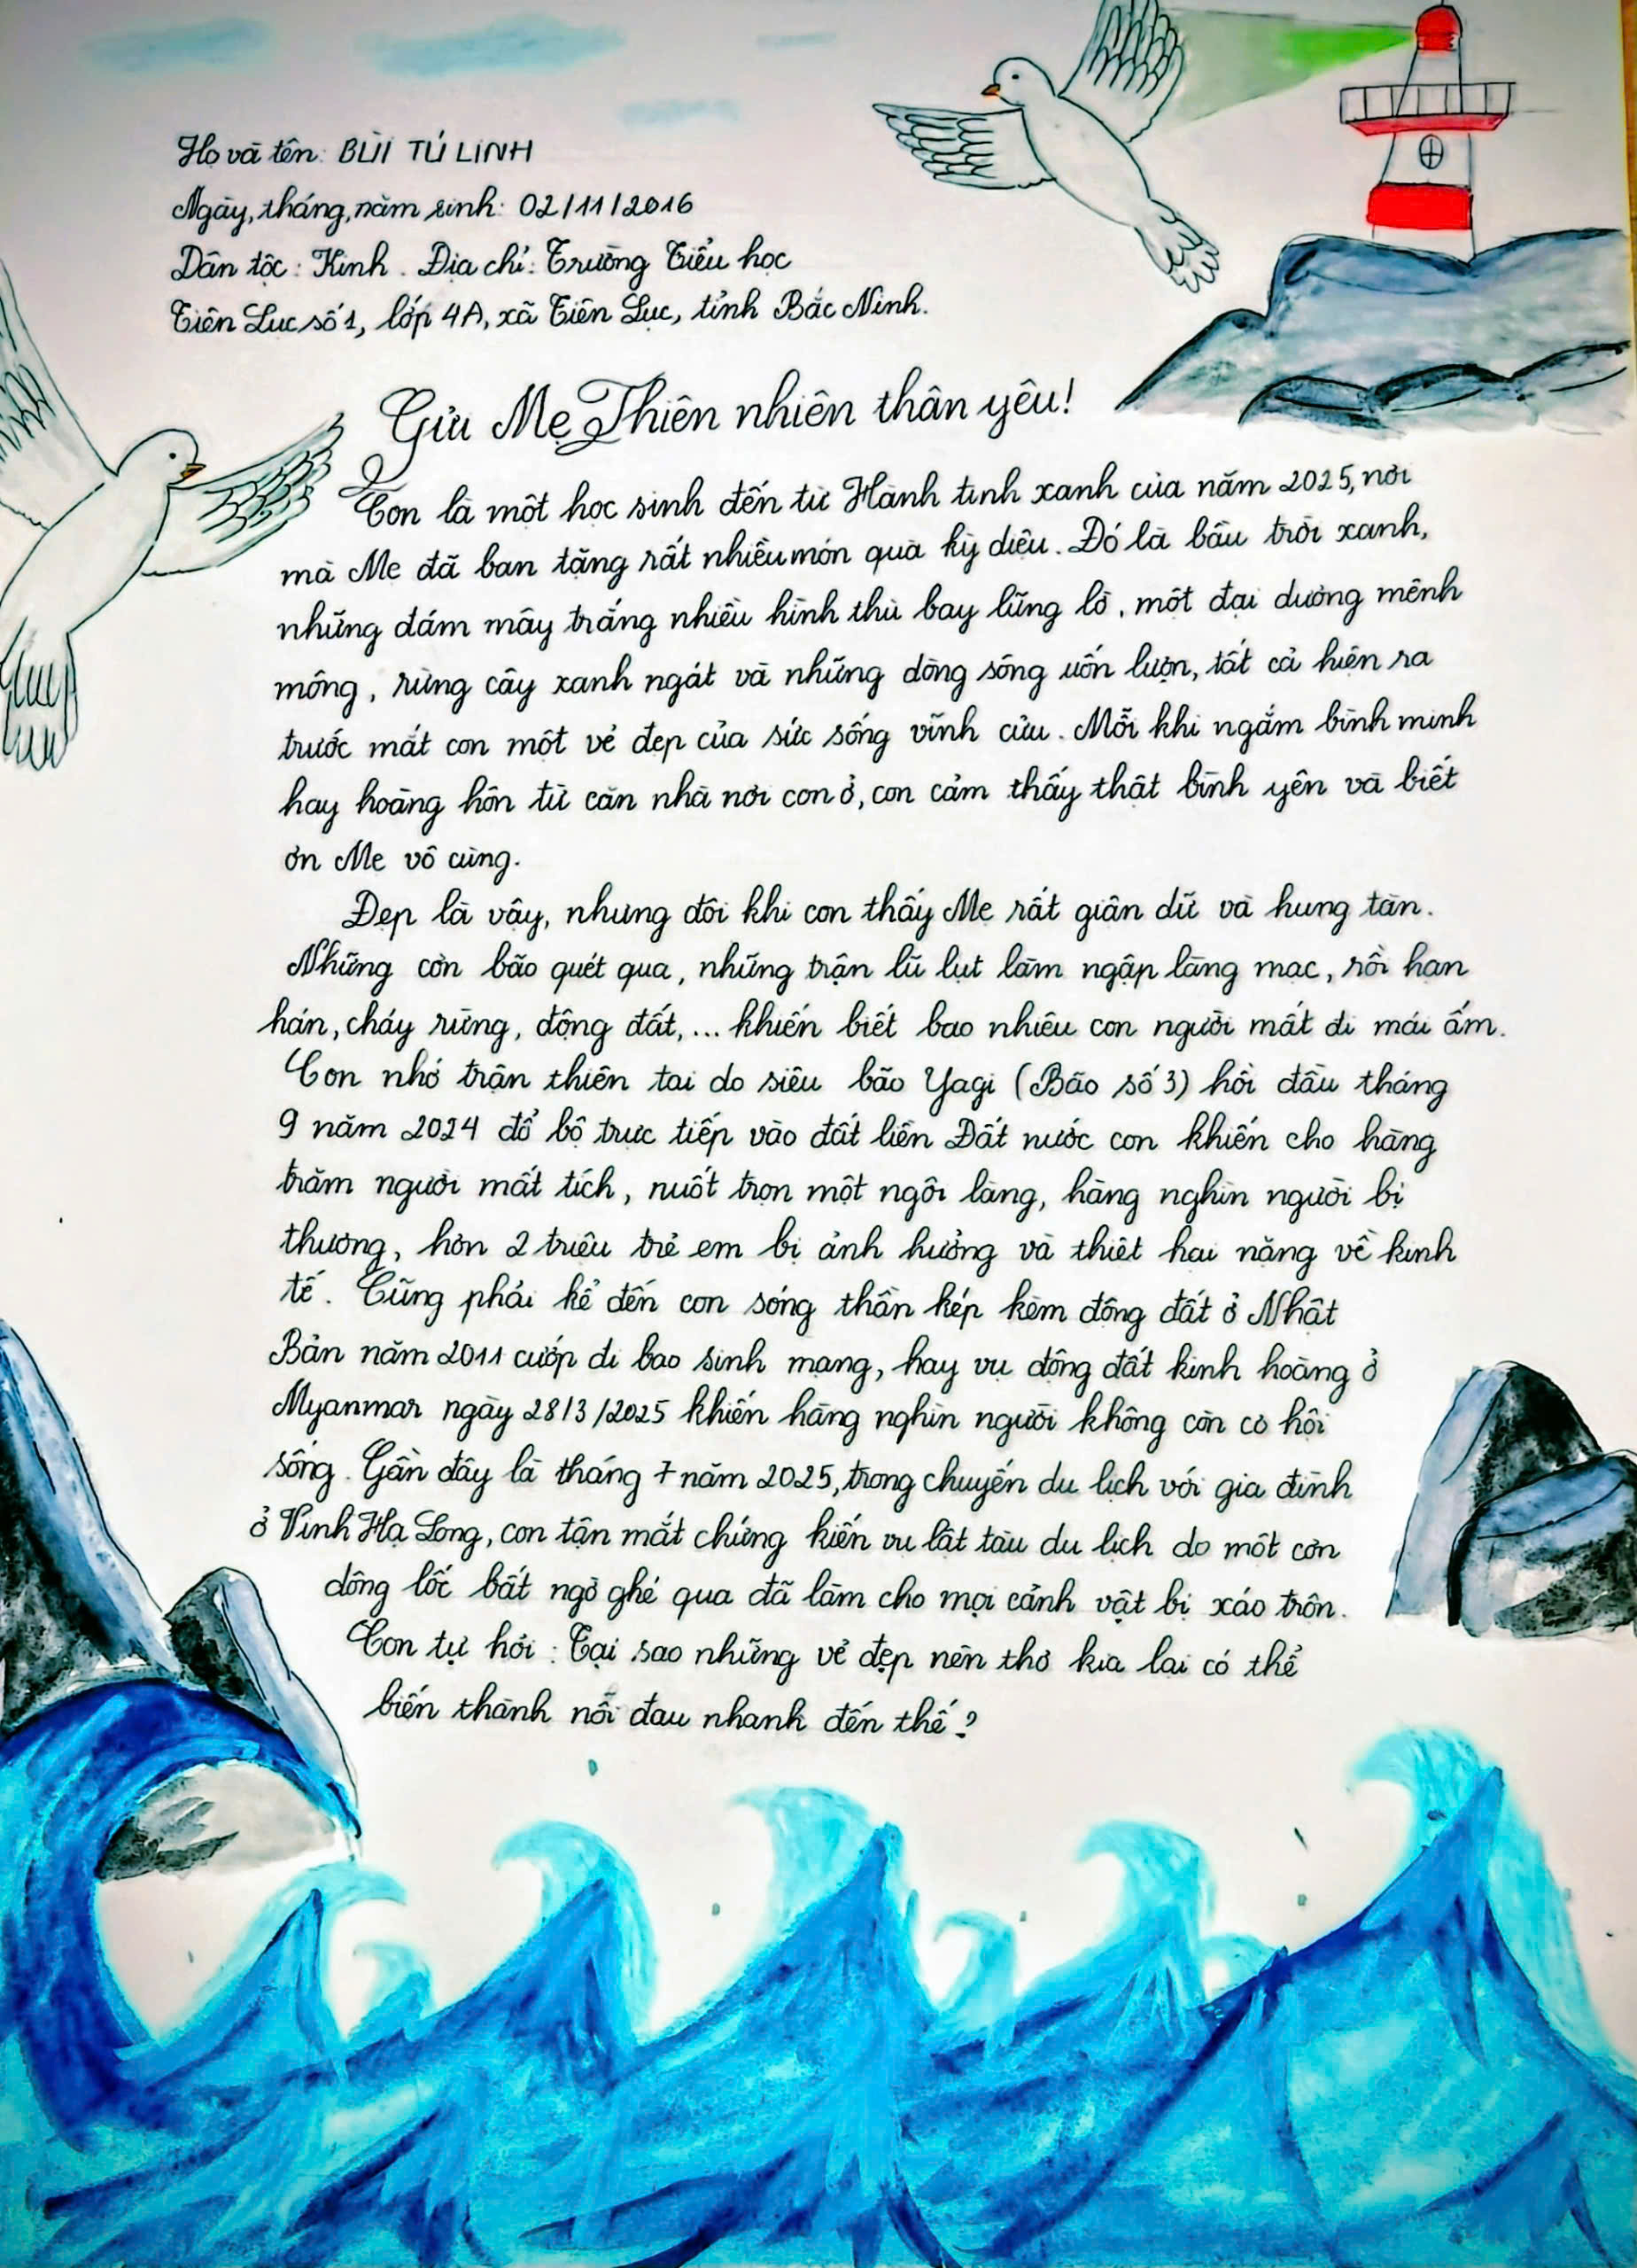 Họ và tên: BÙI TÚ LINH
Ngày, tháng, năm sinh: 02/11/2016
Dân tộc: Kinh. Địa chỉ: Trường Tiểu học
Tiên Lục số 1, lớp 4A, xã Tiên Lục, tỉnh Bắc Ninh.
Gửi Mẹ Thiên nhiên thân yêu!
Con là một học sinh đến từ Hành tinh xanh của năm 2025, nơi
mà Mẹ đã ban tặng rất nhiều món quà kỳ diệu. Đó là bầu trời xanh,
những đám mây trắng nhiều hình thù bay lững lờ, một đại dương mênh
mông, rừng cây xanh ngát và những dòng sông uốn lượn, tất cả hiện ra
trước mắt con một vẻ đẹp của sức sống vĩnh cửu. Mỗi khi ngắm bình minh
hay hoàng hôn từ căn nhà nơi con ở, con cảm thấy thật bình yên và biết
ơn Mẹ vô cùng.
Đẹp là vậy, nhưng đôi khi con thấy Mẹ rất giận dữ và hung tàn.
Những cơn bão quét qua, những trận lũ lụt làm ngập làng mạc, rồi hạn
hán, cháy rừng, động đất,... khiến biết bao nhiêu con người mất đi mái ấm.
Con nhớ trận thiên tai do siêu bão Yagi (Bão số 3) hồi đầu tháng
9 năm 2024 đổ bộ trực tiếp vào đất liền Đất nước con khiến cho hàng
trăm người mất tích, nuốt trọn một ngôi làng, hàng nghìn người bị
thương, hơn 2 triệu trẻ em bị ảnh hưởng và thiệt hại nặng về kinh
tế. Cũng phải kể đến con sóng thần kép kèm động đất ở Nhật
Bản năm 2011 cướp đi bao sinh mạng, hay vụ động đất kinh hoàng ở
Myanmar ngày 28/3/2025 khiến hàng nghìn người không còn cơ hội
sống. Gần đây là tháng 7 năm 2025, trong chuyến du lịch với gia đình
ở Vịnh Hạ Long, con tận mắt chứng kiến vụ lật tàu du lịch do một cơn
dông lốc bất ngờ ghé qua đã làm cho mọi cảnh vật bị xáo trộn.
Con tự hỏi: Tại sao những vẻ đẹp nên thơ kia lại có thể
biến thành nỗi đau nhanh đến thế?